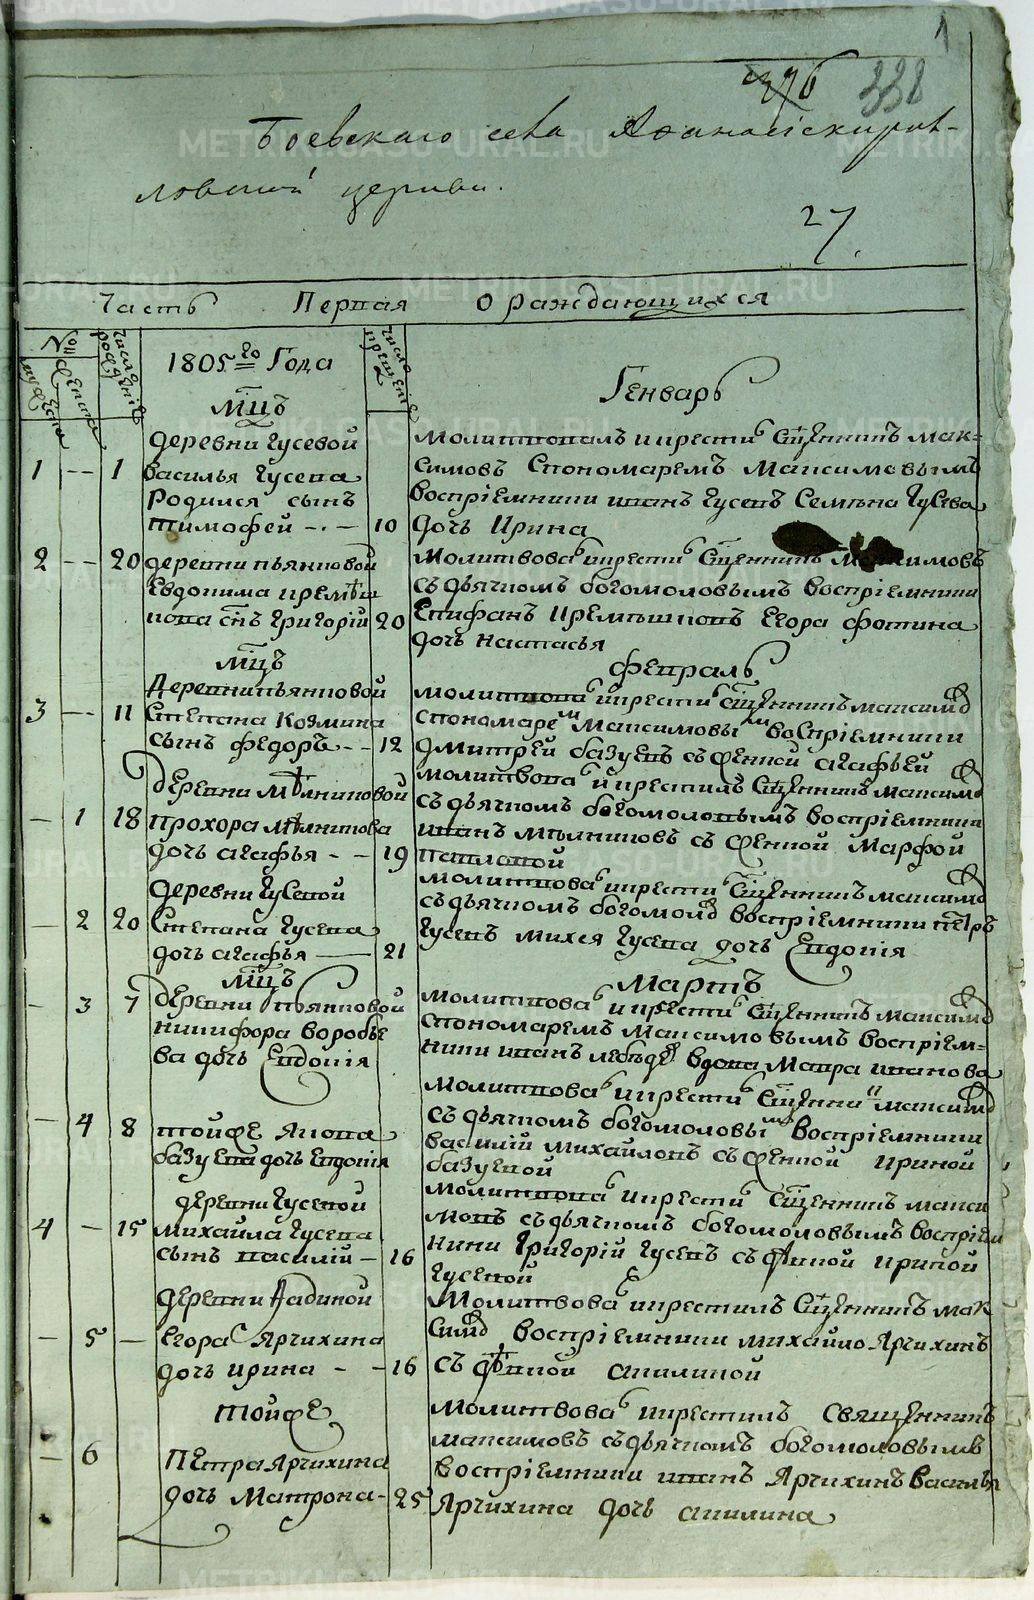 1
376 338
Боевскаго села Афанасіекирил-
ловской церкви.
27.
Часть Первая О раждающихся
1805го Года
Генварь
мцъ
1 -- 1
деревни гусевой
василья гусева
родился сынъ
тимофей -- 10
молитвовалъ и крести сщенникъ мак-
симовъ спономаремъ максимовымъ
воспріемники иванъ гусевъ Семена гусева
дочь Ирина
2 -- 20
деревни пьянковой
Евдокима кремлеш
кова снъ григорій 20
молитвова и крести сщенникъ Максимовъ
съ дьячкомъ богомоловымъ воспріемники
Епифанъ Кремлешковъ Егора фотина
дочь настасья
мцъ
февраль
3 -- 11
деревни пьянковой
Степана Козмина
сынъ федоръ -- 12
молитвова и крести сщенникъ максимов
спономарем максимовым воспріемники
дмитрей базуевъ съ женкой агафьей
- 1 18
деревни мелниковой
прохора мелникова
дочь агафья -- 19
молитвова и крестилъ сщенникъ максимов
съ дьячкомъ богомоловымъ воспріемники
иванъ мелниковъ съ женкой Марфой
павловой
- 2 20
деревни гусевой
Степана гусева
дочь агафья — 21
молитвова и крести сщенникъ максимов
съ дьячкомъ богомолов воспріемники петръ
гусевъ михея гусева дочь Евдокія
мцъ
мартъ
- 3 7
деревни пьянковой
никифора воробье
ва дочь Евдокія
молитвова и крести сщенникъ максимов
спономаремъ максимовымъ воспріем-
ники иванъ лебедев вдова Мавра иванова
- 4 8
тойже якова
базуева дочь Евдокія
молитвова и крести сщенник максимов
съ дьячкомъ богомоловым воспріемники
василій михайловъ съ женкой ириной
базуевой
4 - 15
деревни гусевой
михайла гусева
сынъ василій - 16
молитвова и крести сщенникъ макси
мовъ съ дьячкомъ богомоловымъ воспріем
ники григорій гусевъ съ женкой ириной
гусевой
- 5 -
деревни кадиной
Егора Ярчихина
дочь ирина -- 16
Молитвова и крестилъ сщенникъ мак
симов воспріемники михайло Ярчихинъ
съ женкой акилиной
- 6
тойже
Петра Ярчихина
дочь Матрона - 25
молитвова и крестилъ священникъ
максимовъ съ дьячкомъ богомоловымъ
воспріемники иванъ Ярчихинъ василья
Ярчихина дочь акилина
METRIKI.GASO-URAL.RU